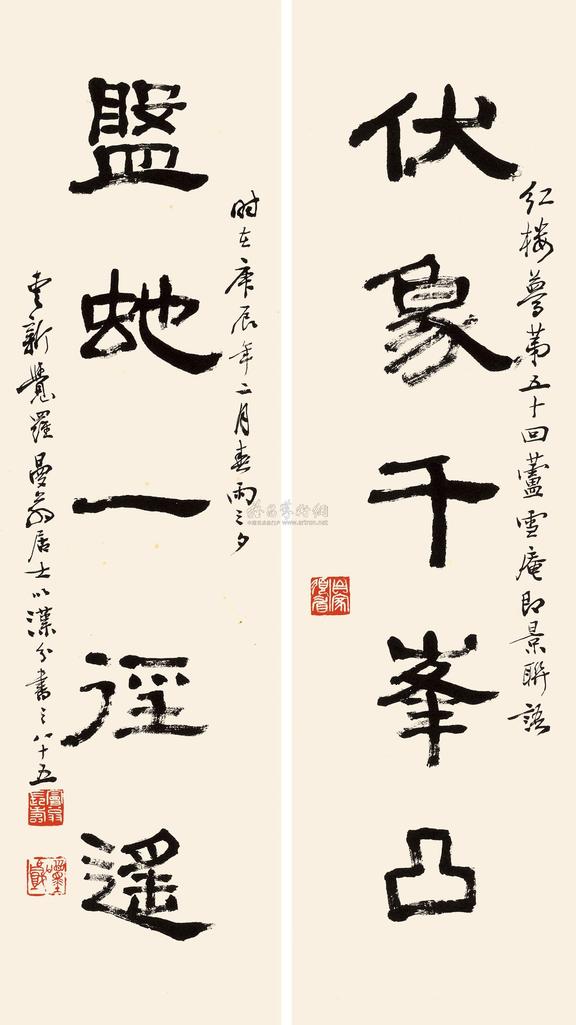 伏象千峯凸
红楼夢第五十回蘆雪庵即景聯語
盤虵一徑遙
时在庚辰年二月春雨之夕
新覺羅曼翁居士以漢分書之八十五
雅昌藝術網
www.artron.net